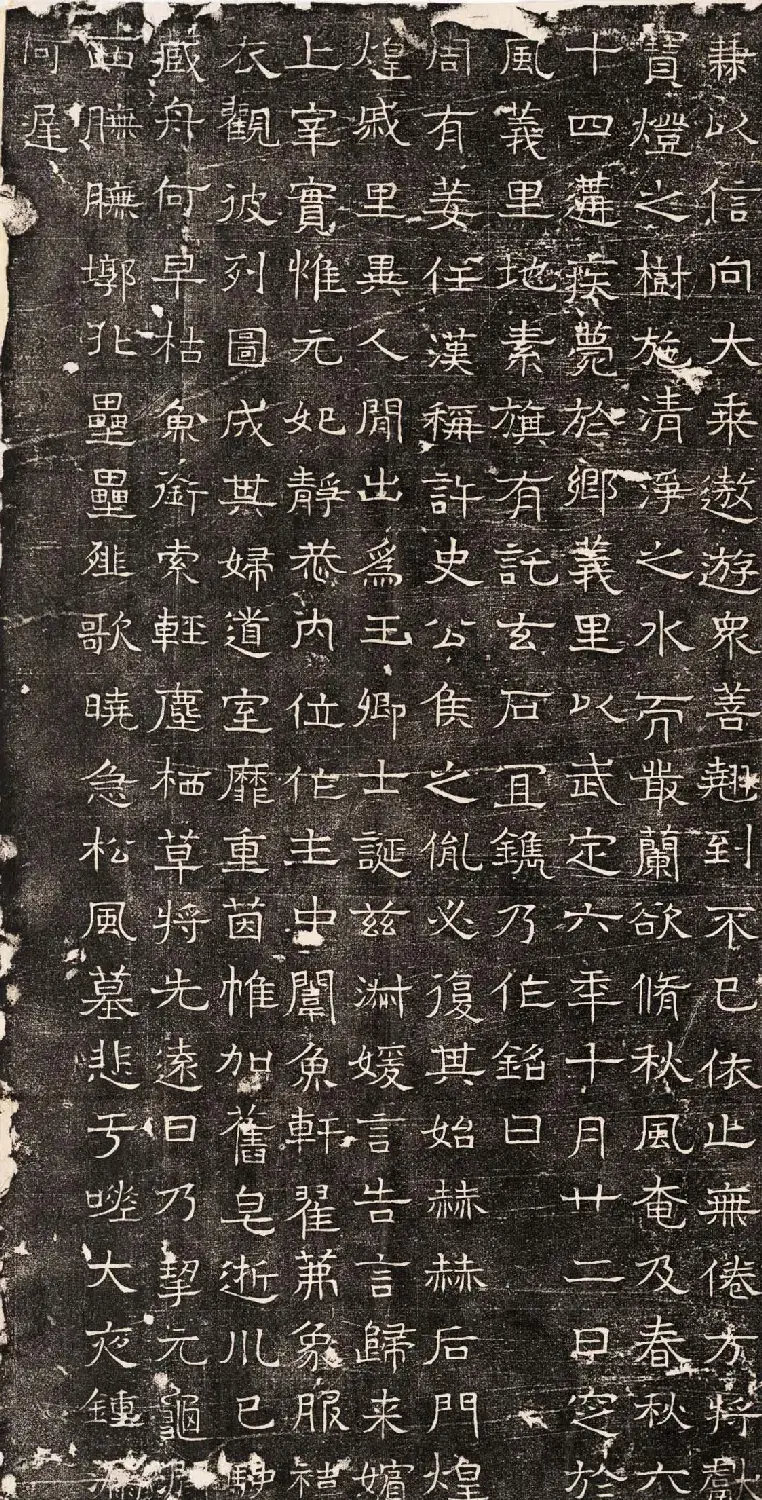 兼以信向大乘遨遊眾善翹到不已依止無倦方將獻
寶燈之樹施清淨之水而叢蘭欲脩秋風奄及春秋六
十四遘疾薨於鄉義里以武定六年十月廿二日窆於
風義里地素旗有託玄石宜鐫乃作銘曰
周有姜任漢稱許史公侯之胤必復其始赫赫后門煌
煌戚里異人間出為王卿士誕茲淑媛言告言歸来嬪
上宰實惟元妃靜恭內位作主中闈魚軒翟茀象服褘
衣觀彼列圖成其婦道室靡重茵帷加舊皂逝川已駛
藏舟何早枯魚銜索輕塵栖草將先遠日乃挈元龜
西膴膴墎北壘壘薤歌曉急松風墓悲于嗟大夜鍾漏
何遲